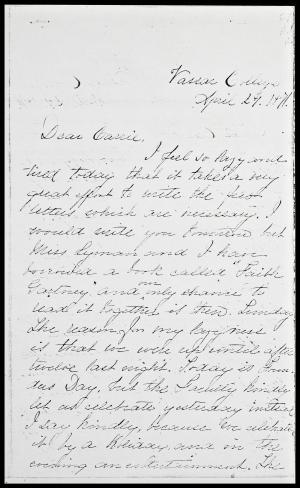 Vassar College
April 29, 1871.
Dear Carrie,
I feel so lazy and
tired today that it takes a very
great effort to write the few
letters which are necessary. I
would write you tomorrow but
Miss Lyman and I have
borrowed a book called "Faith
Gartney" and our only chance to
read it together is then. Sunday
The reason for my laziness
is that we were up until after
twelve last night. Today is Foun-
ders Day, but the Faculty kindly
let us celebrate yesterday instead
I say kindly, because we celebrate
it by a holiday, and in the
evening an entertainment. The